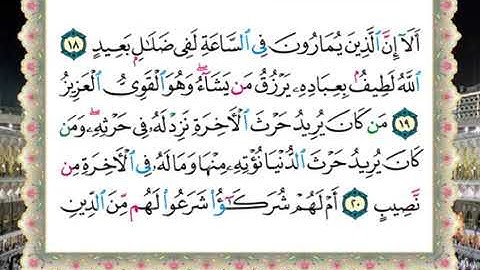 أَلَآ إِنَّ ٱلَّذِينَ يُمَارُونَ فِى ٱلسَّاعَةِ لَفِى ضَلَٰلٍۭ بَعِيدٍ ١٨
ٱللَّهُ لَطِيفٌۢ بِعِبَادِهِۦ يَرْزُقُ مَن يَشَآءُ ۖ وَهُوَ ٱلْقَوِىُّ ٱلْعَزِيزُ
١٩ مَن كَانَ يُرِيدُ حَرْثَ ٱلْأَخِرَةِ نَزِدْ لَهُۥ فِى حَرْثِهِۦ ۖ وَمَن
كَانَ يُرِيدُ حَرْثَ ٱلدُّنْيَا نُؤْتِهِۦ مِنْهَا وَمَا لَهُۥ فِى ٱلْأَخِرَةِ مِن
نَّصِيبٍ ٢٠ أَمْ لَهُمْ شُرَكَٰٓؤُا۟ شَرَعُوا۟ لَهُم مِّنَ ٱلدِّينِ